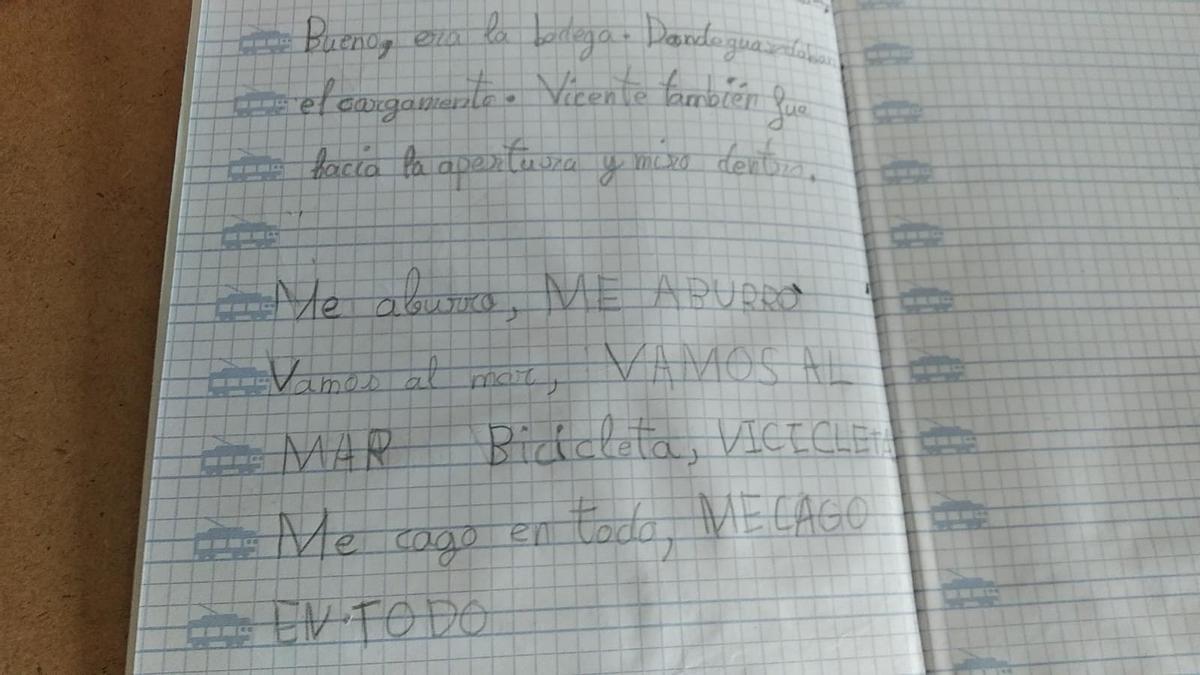 Bueno, era la bodega. Donde guardaban
el cargamento. Vicente también fue
hacia la apertura y miro dentro.
Me aburro, ME ABURRO
Vamos al mar, VAMOS AL
MAR Bicicleta, VICICLETA
Me cago en todo, ME CAGO
EN TODO